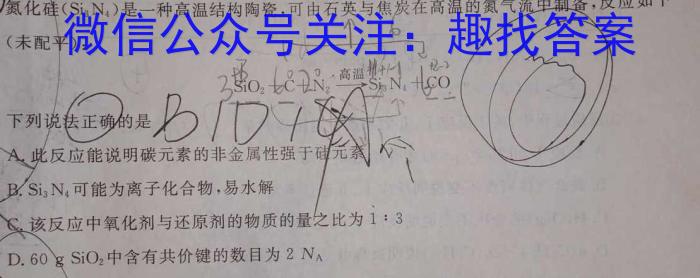 氮化硅(Si₃N₄)是一种高温结构陶瓷,可由石英与焦炭在高温的氮气流中制备,反应如下
(未配平)
微信公众号关注:趣找答案
SiO₂+C+N₂ 高温 Si₃N₄+CO
下列说法正确的是
A. 此反应能说明碳元素的非金属性强于硅元素
B. Si₃N₄可能为离子化合物,易水解
C. 该反应中氧化剂与还原剂的物质的量之比为1∶3
D. 60 g SiO₂中含有共价键的数目为2 Nₐ